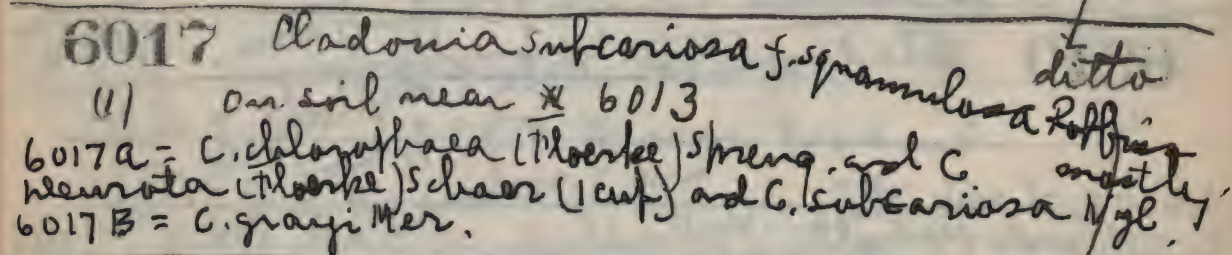 6017 Cladonia subcariosa f. squamulosa Robbins ditto
(1) on soil near * 6013
6017a = C. chlorophaea (Floerke) Spreng. and C mostly,
(Floerke) Schaer (1 cup) and C. subcariosa Nyl.
6017B = C. grayi Mer.